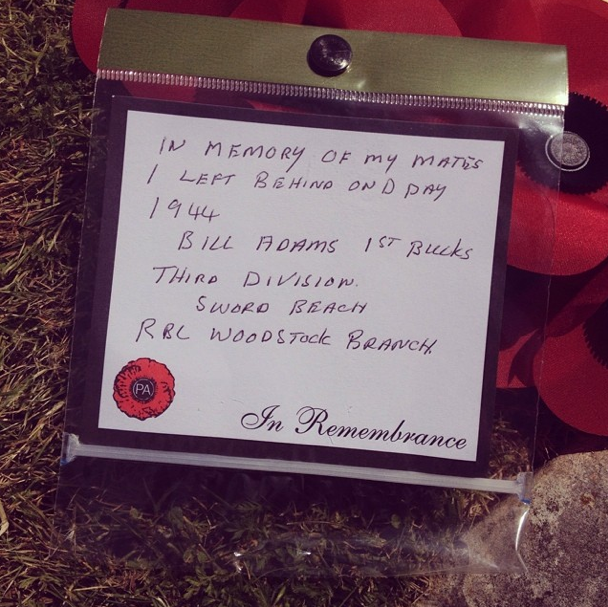 IN MEMORY OF MY MATES
I LEFT BEHIND ON D DAY
1944
BILL ADAMS 1ST BUCKS
THIRD DIVISION.
SWORD BEACH
RBL WOODSTOCK BRANCH.
PA
In Remembrance